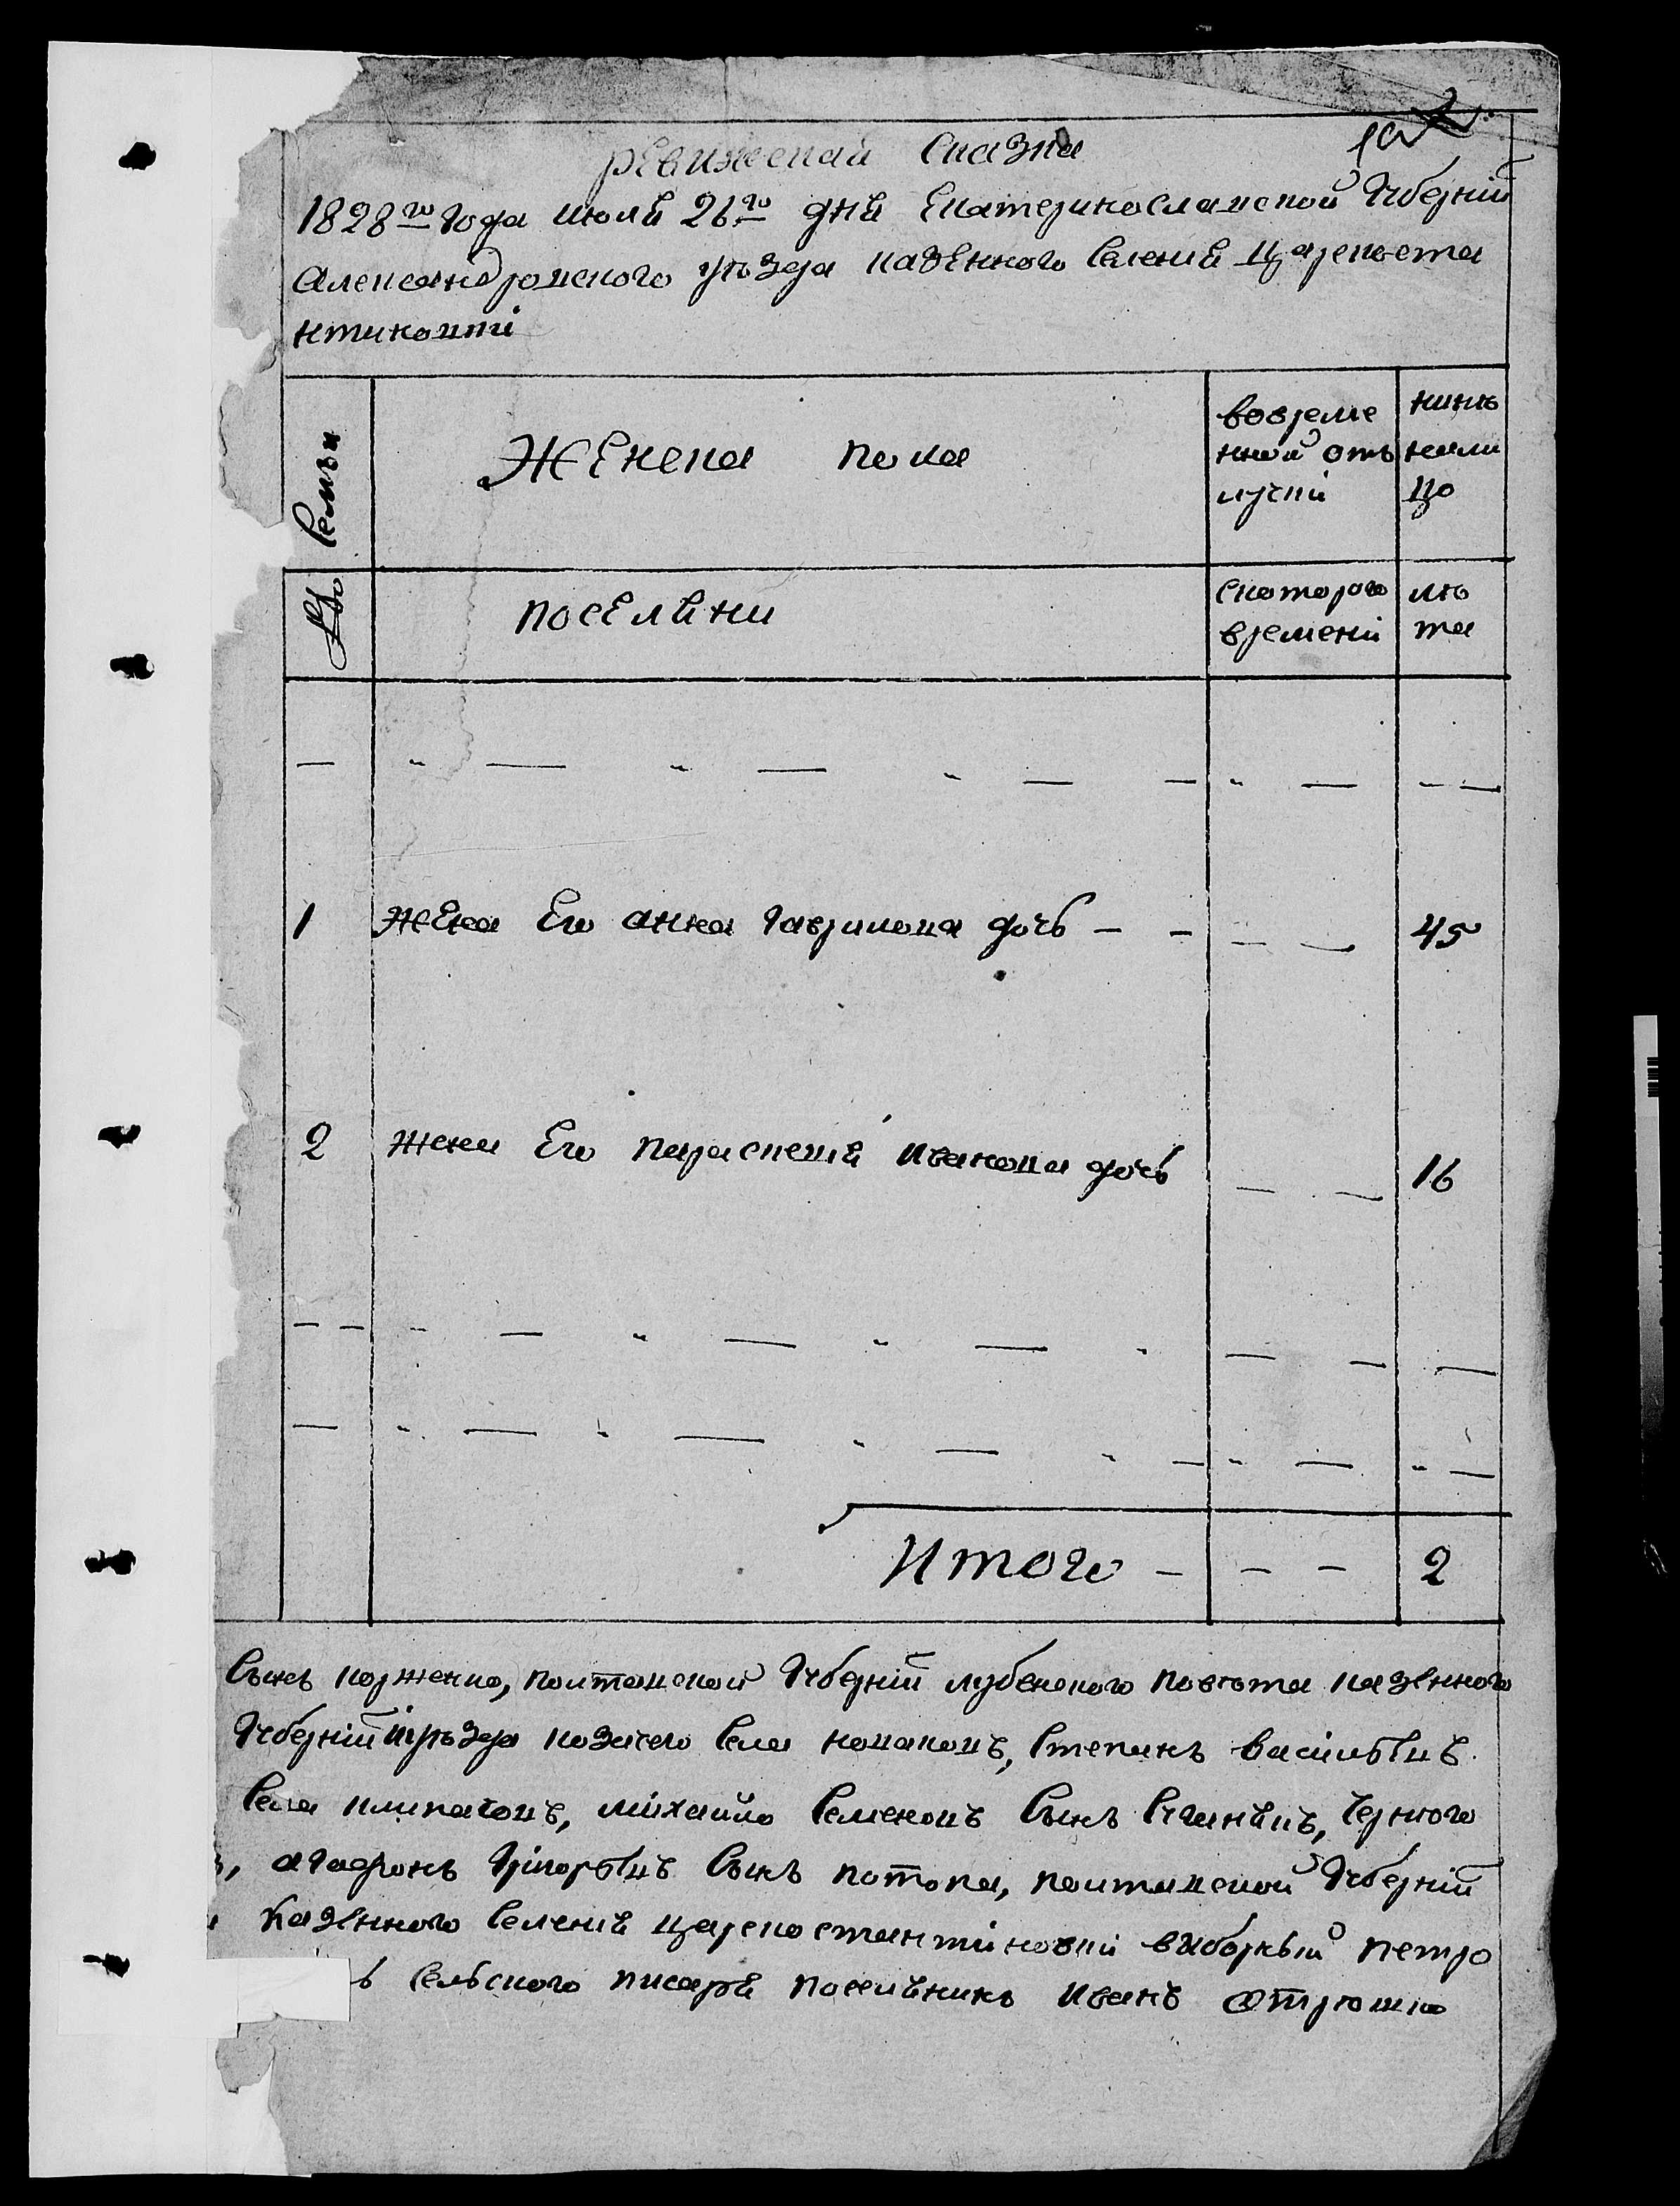 ревижская Сказка
1828го года июля 26го дня Екатеринославской Губерній
Александровского уѣзда казенного Селенія Цареконста
нтиновки
Семьи
Женска пола
вовреме
нной отъ
лучки
нинѣ
нали
цо
№
поселяни
Скоторого
времени
лѣ
та
1 Жена Его анна Гаврилова дочь 45
2 жена Его параскевия иванова дочь 16
Итого 2
Сынъ корженко, полтавской Губерній лубенского повѣта казенного
Губерній уѣзда козачего Села Степанъ васильевъ
Села михайло Семеновъ Сынъ черного
агафонъ Григорьевъ Сынъ потопа, полтавской Губерній
Казенного Селенія цареконстантиновки выборный петро
ъ Сельского писаря поселянинъ иванъ